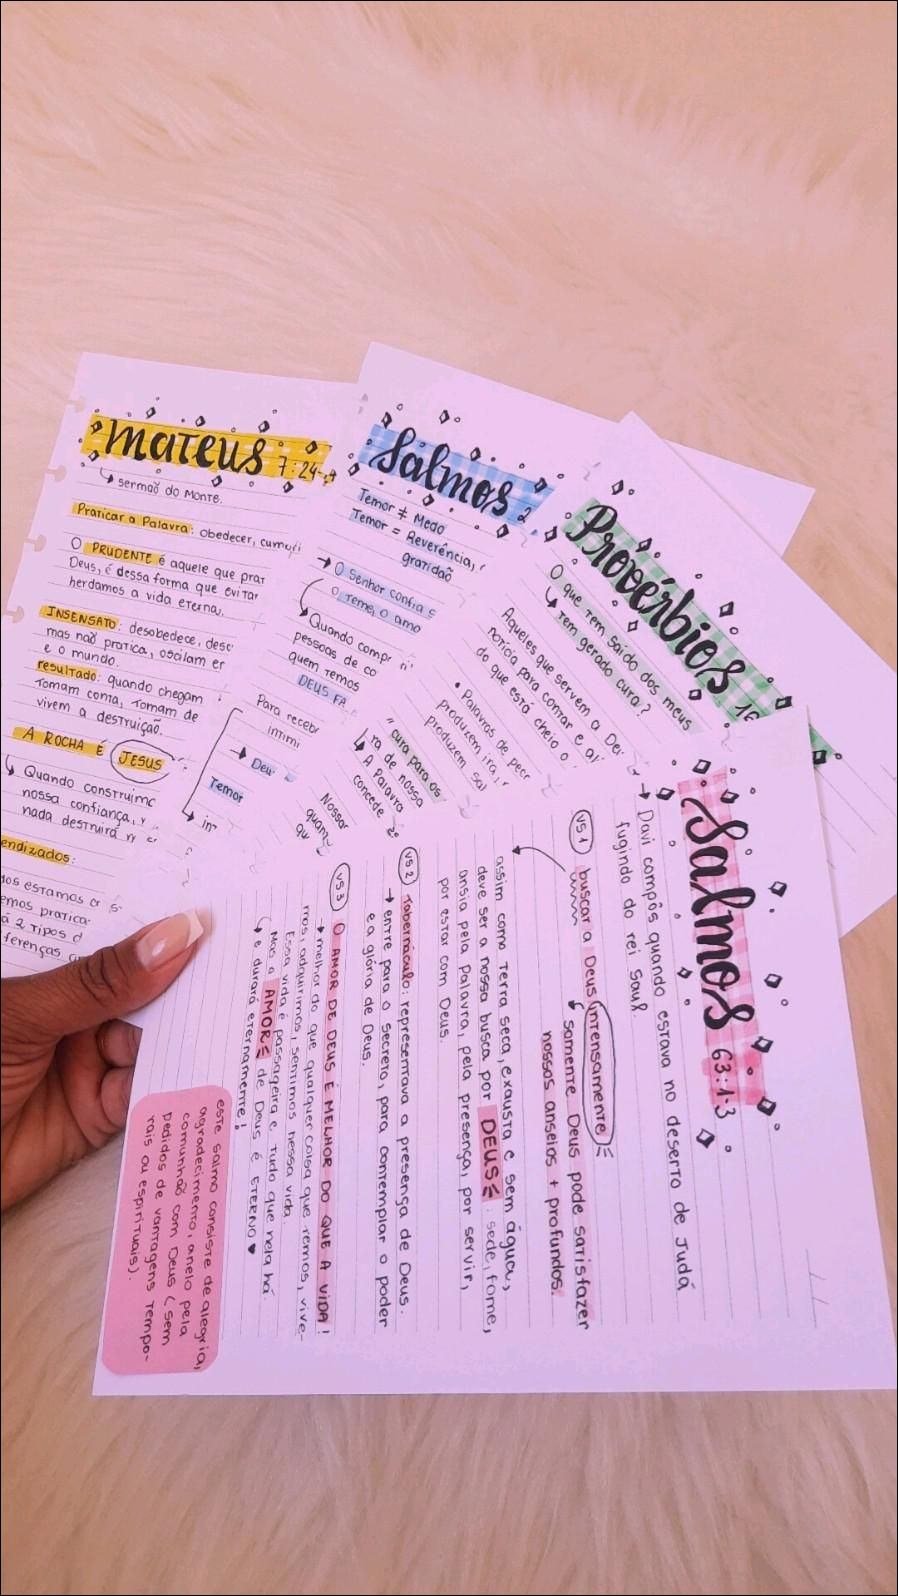 Mateus 7:24-
↳ sermão do Monte.
Praticar a Palavra: obedecer,
O PRUDENTE é aquele que
Deus, é dessa forma que
herdamos a vida eterna.
INSENSATO: desobedece,
mas não pratica, oscilam
e o mundo.
resultado: quando chegam
tomam conta, tomam de
vivem a destruição.
A ROCHA É JESUS
↳ Quando
nossa confiança,
nada destruirá
endizados:
estamos
2 tipos
ferenças
Salmos 2
Temor ≠ Medo
Temor = Reverência,
gratidão
→ O Senhor confia
o teme, o
↳ Quando
pessoas de
quem temos
DEUS
Para
→ Deu
Temor
Provérbios 16
O que tem saído dos meus
↳ tem gerado cura?
Aqueles que servem a
notícia para contar e
do que está cheio o
• Palavras de
produzem ira,
produzem
cura para os
de nossa
↳ A Palavra
concede
Salmos 63:1-3
→ Davi compôs quando estava no deserto de Judá
fugindo do rei Saul.
VS 1 buscar a Deus intensamente
↳ Somente Deus pode satisfazer
nossos anseios + profundos.
assim como terra seca, exausta e sem água,
deve ser a nossa busca por DEUS: sede, fome,
ansia pela Palavra, pela presença, por servir,
por estar com Deus.
VS 2 Tabernáculo: representava a presença de Deus.
→ entre para o secreto, para contemplar o poder
e a glória de Deus.
VS 3 O AMOR DE DEUS É MELHOR DO QUE A VIDA!
→ melhor do que qualquer coisa que temos, vive-
mos, adquirimos, sentimos nessa vida.
Essa vida é passageira e tudo que nela há.
Mas o AMOR de Deus é ETERNO ♥
↳ e durará eternamente!
este salmo consiste de alegria,
agradecimento, anelo pela
comunhão com Deus (sem
pedidos de vantagens tempo-
rais ou espirituais).